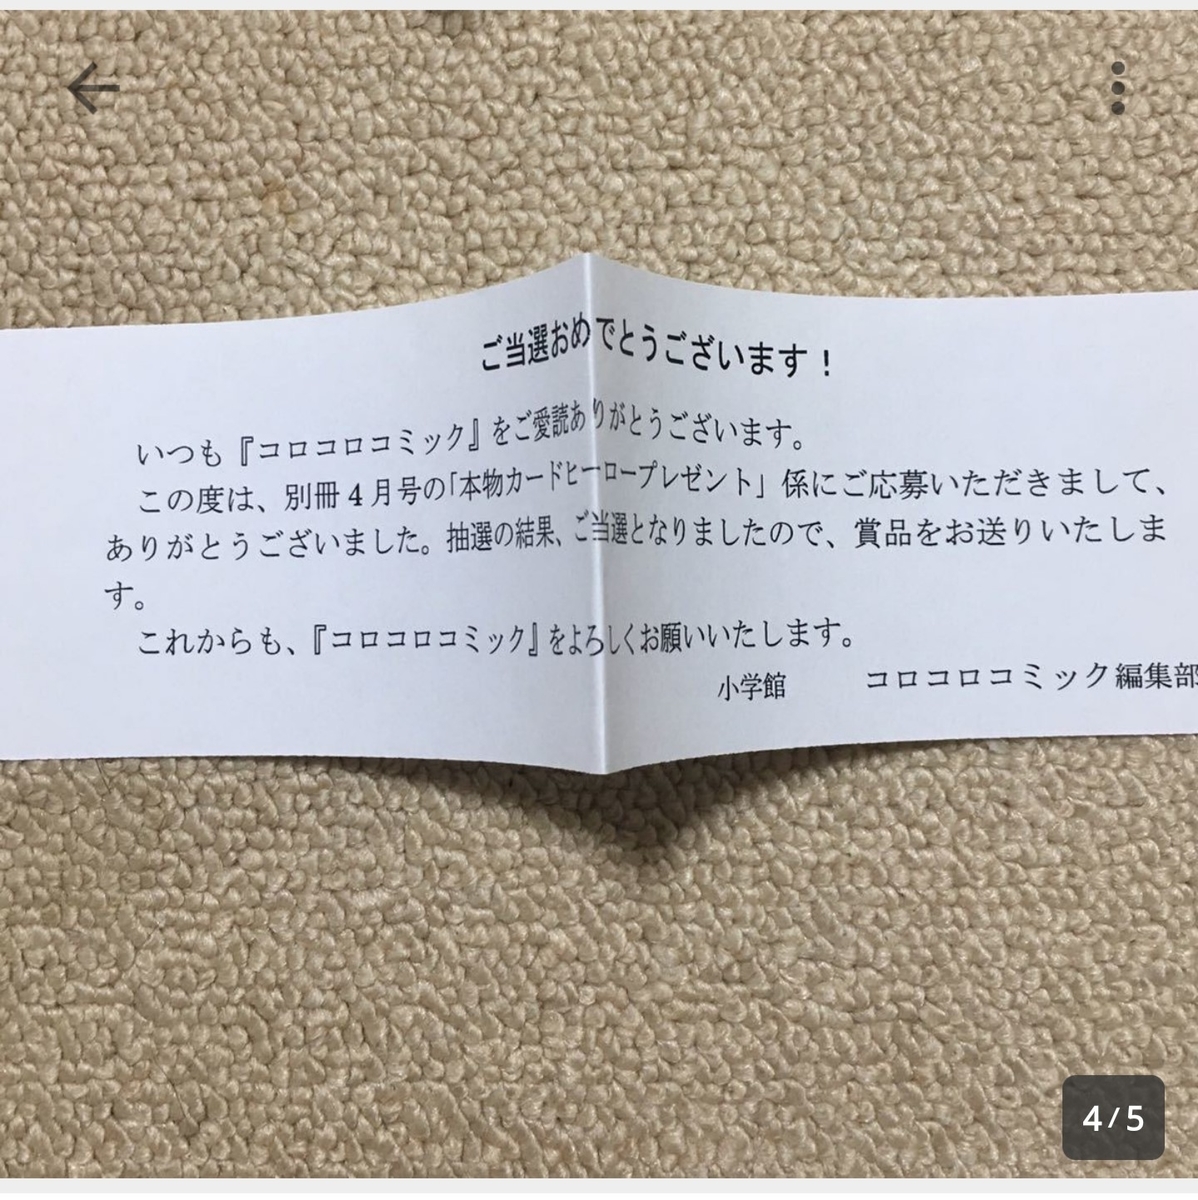 ご当選おめでとうございます！
いつも『コロコロコミック』をご愛読ありがとうございます。
この度は、別冊４月号の「本物カードヒーロープレゼント」係にご応募いただきまして、
ありがとうございました。抽選の結果、ご当選となりましたので、賞品をお送りいたしま
す。
これからも、『コロコロコミック』をよろしくお願いいたします。
小学館　　コロコロコミック編集部
4/5